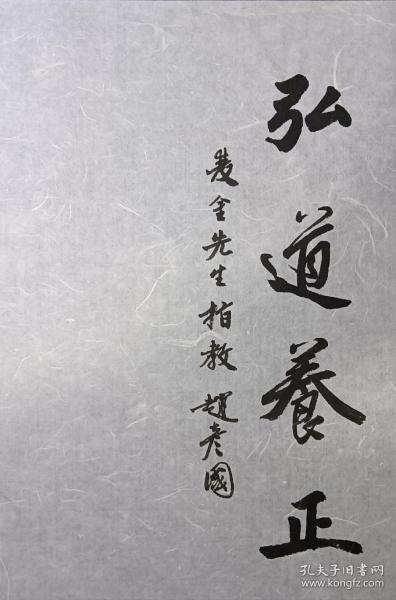 弘道養正
金先生柏教 趙彥國
孔夫子旧书网
www.kongfz.com